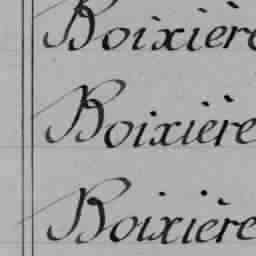 Boixière
Boixière
Boixière